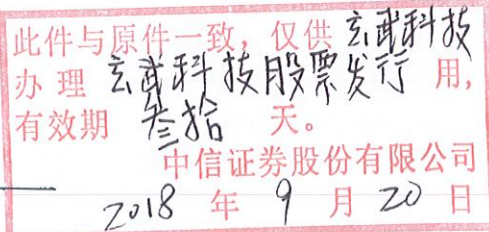 此件与原件一致，仅供玄武科技
办理玄武科技股票发行用，
有效期叁拾天。
中信证券股份有限公司
2018年9月20日